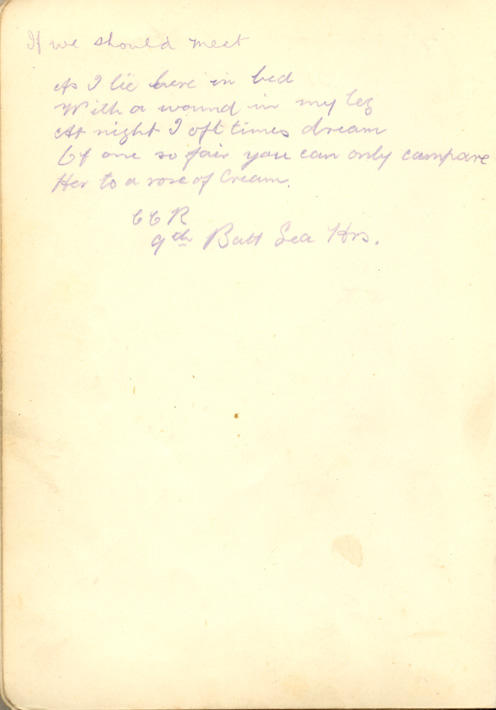 If we should meet
As I lie here in bed
With a wound in my leg
At night I oft times dream
Of one so fair you can only compare
Her to a rose of Cream.
C C R
9th Batt Sea Hrs.